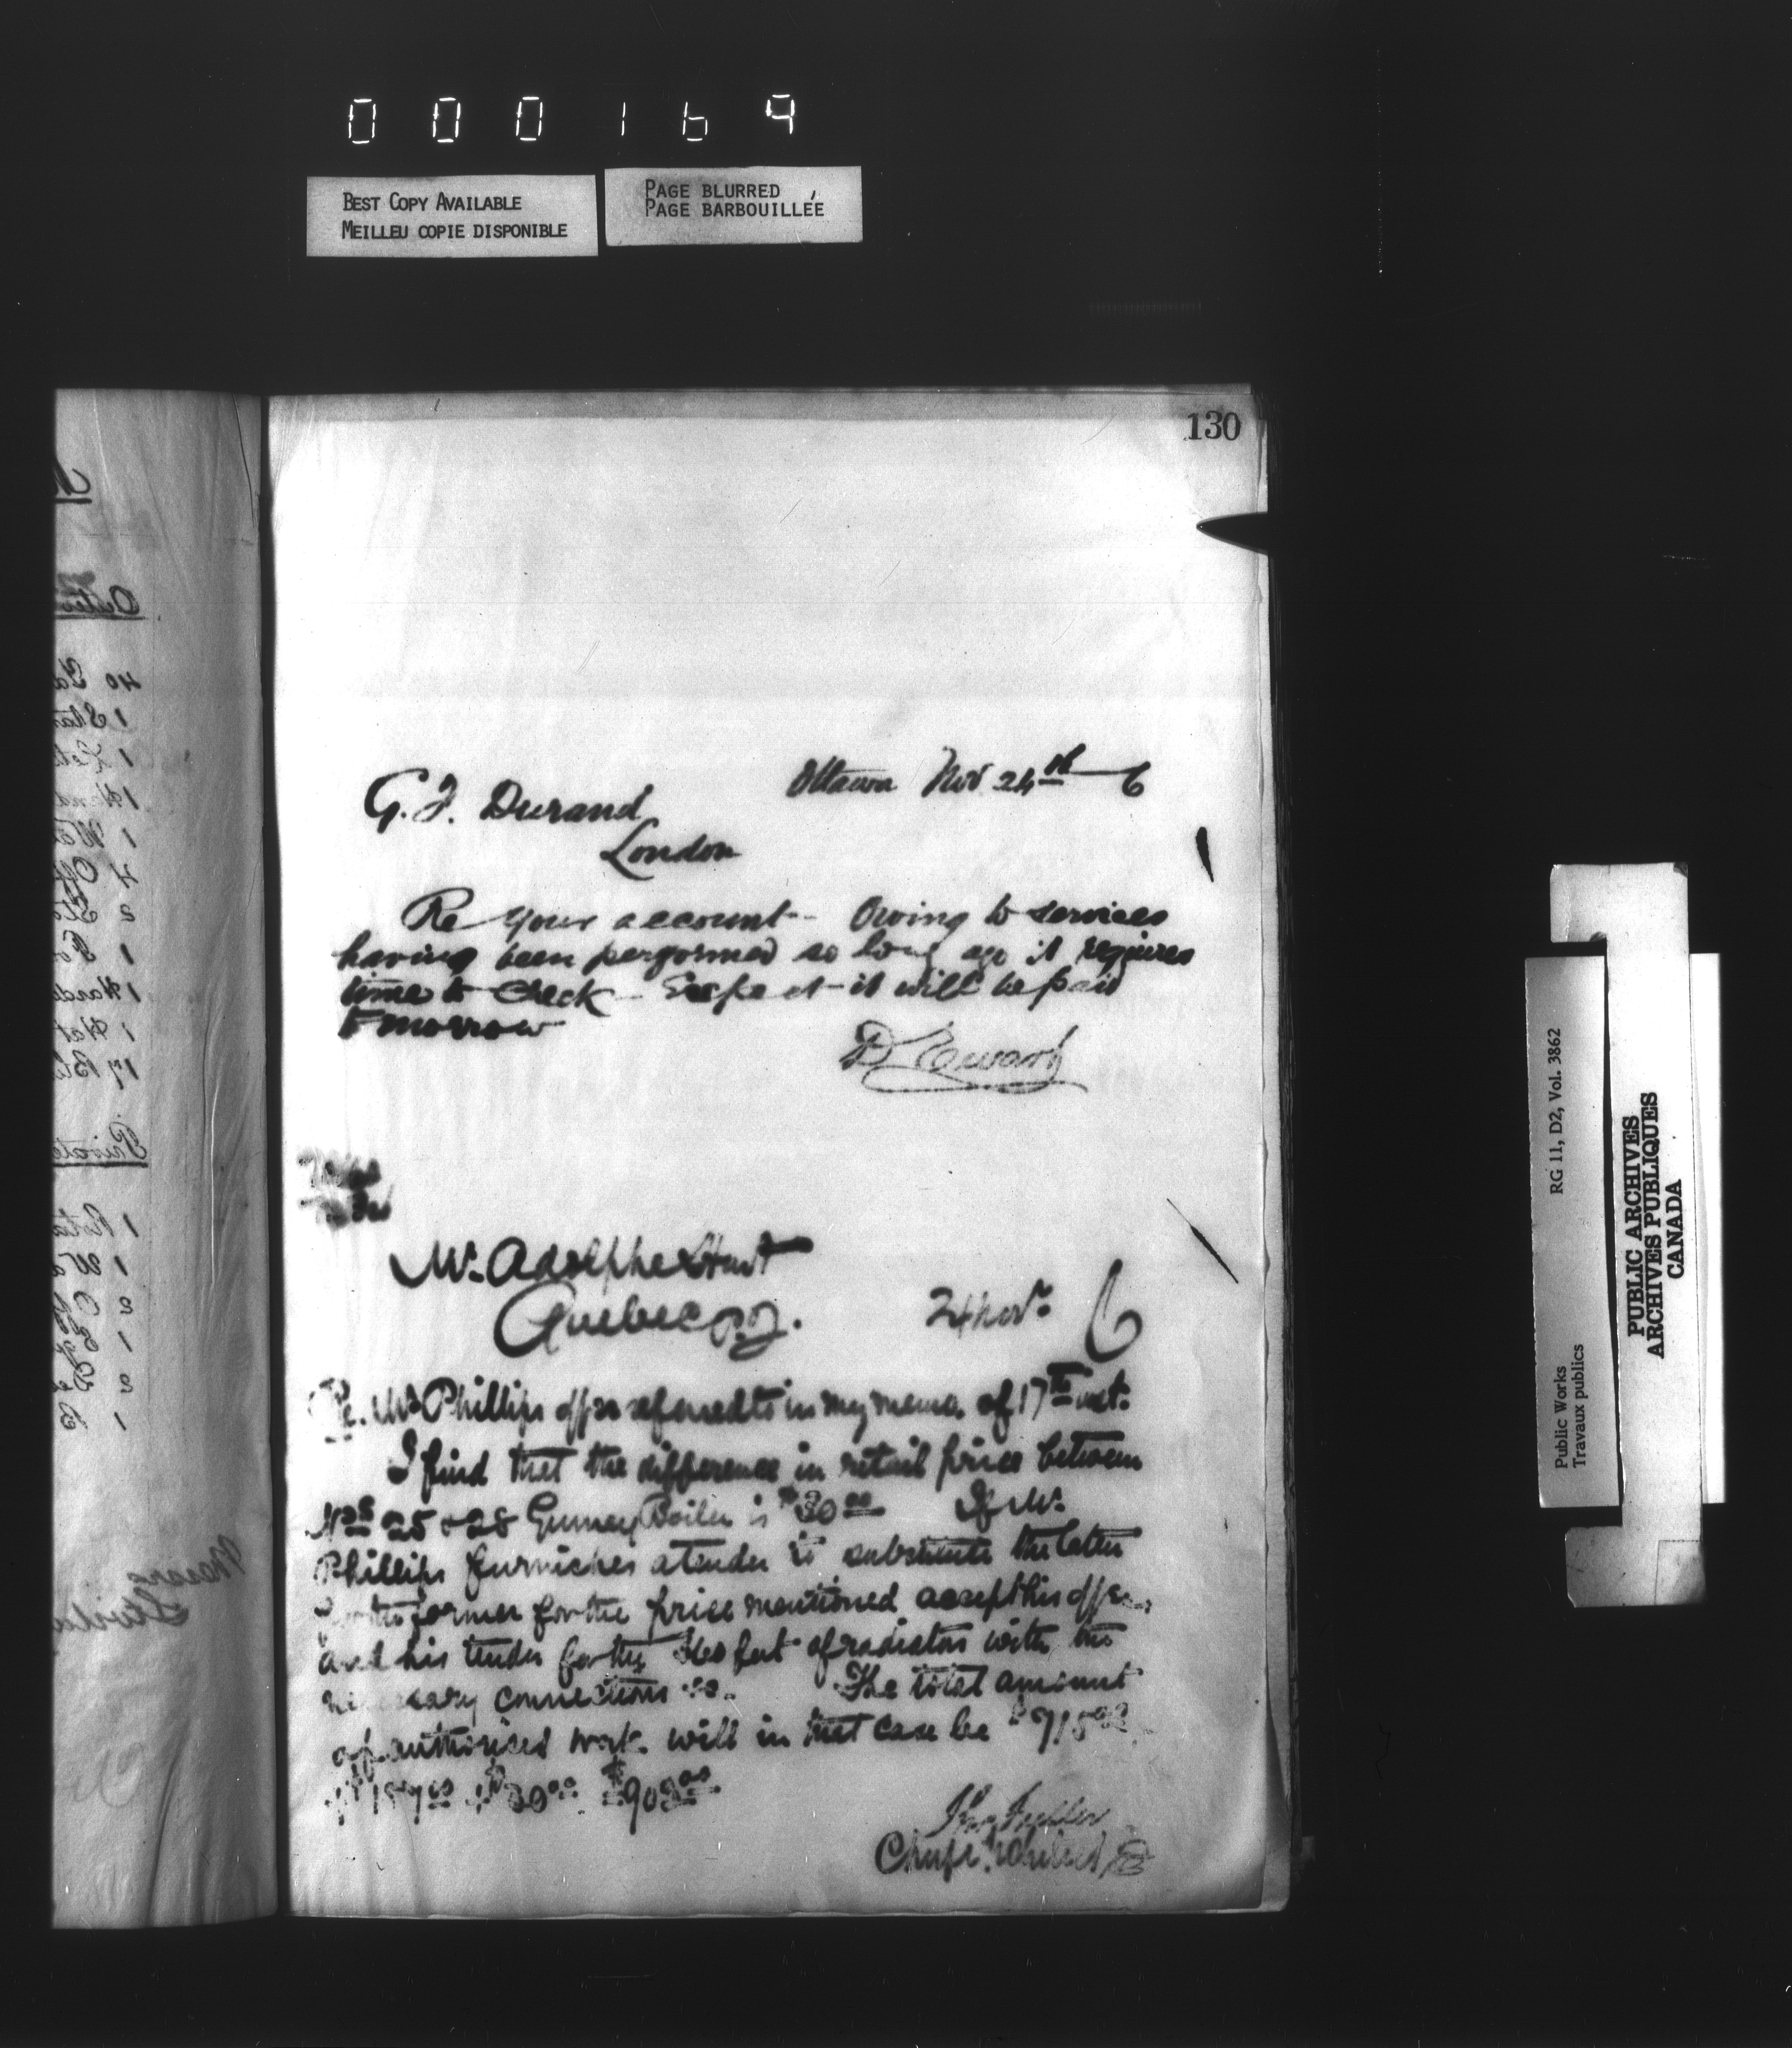 000169
BEST COPY AVAILABLE
MEILLEU COPIE DISPONIBLE
PAGE BLURRED
PAGE BARBOUILLÉE
130
Ottawa Nov 24th 6
G. F. Durand
London
Re your account - Owing to services
having been performed so long ago it requires
time to check - Expect it will be paid
tomorrow
D Ewart
Mr. Adolphe
Quebec P.Q.
24 Novr. 6
Re. Mr Phillips offer referred to in my memo. of 17th inst.
I find that the difference in retail price between
Nos 25 & 28 Gurney Boiler is $30.00 If Mr.
Phillips furnishes a tender to substitute the latter
for the former for the price mentioned accept his offer
and his tender for the feet of radiators with the
necessary connections &c. The total amount
of authorised work will in that case be $715
$30.00 $903.00
Thos Fuller
Chief Architect
Public Works
Travaux publics
RG 11, D2, Vol. 3862
PUBLIC ARCHIVES
ARCHIVES PUBLIQUES
CANADA